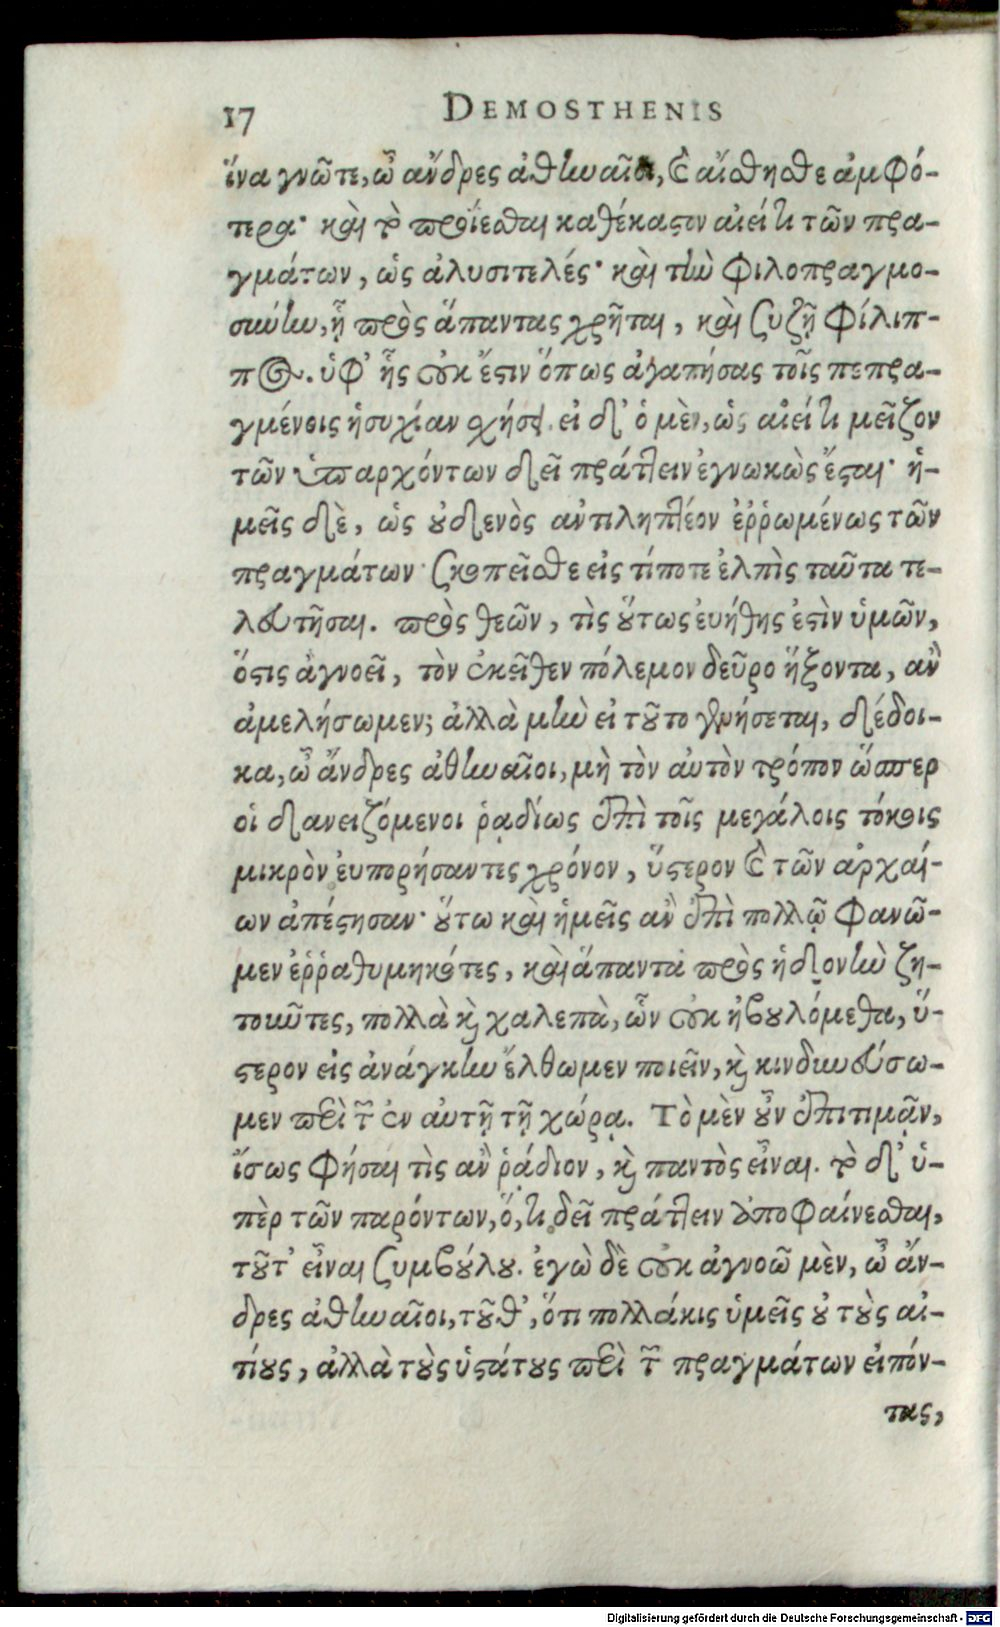 17 DEMOSTHENIS
ἵνα γνῶτε, ὦ ἄνδρες ἀθηναῖοι, καὶ αἴσθησθε ἀμφό-
τερα· καὶ τὸ προΐεσθαι καθέκαστιν αἰεί τι τῶν πρα-
γμάτων, ὡς ἀλυσιτελές· καὶ τὴν φιλοπραγμο-
σύνην, ᾗ πρὸς ἅπαντας χρῆται, καὶ συζῇ Φίλιπ-
πος. ὑφ' ἧς οὐκ ἔστιν ὅπως ἀγαπήσας τοῖς πεπρα-
γμένοις ἡσυχίαν σχήσει. εἰ δ' ὁ μὲν, ὡς αἰεί τι μεῖζον
τῶν ὑπαρχόντων δεῖ πράττειν ἐγνωκὼς ἔσται· ἡ-
μεῖς δὲ, ὡς οὐδενὸς ἀντιληπτέον ἐῤῥωμένως τῶν
πραγμάτων· σκοπεῖσθε εἰς τίποτε ἐλπὶς ταῦτα τε-
λευτῆσαι. πρὸς θεῶν, τὶς οὕτως ἐυήθης ἐστὶν ὑμῶν,
ὅστις ἀγνοεῖ, τὸν ἐκεῖθεν πόλεμον δεῦρο ἥξοντα, ἂν
ἀμελήσωμεν; ἀλλὰ μὴν εἰ τοῦτο γενήσεται, δέδοι-
κα, ὦ ἄνδρες ἀθηναῖοι, μὴ τὸν αὐτὸν τρόπον ὥσπερ
οἱ δανειζόμενοι ῥᾳδίως ἐπὶ τοῖς μεγάλοις τόκοις
μικρὸν ἐυπορήσαντες χρόνον, ὕστερον καὶ τῶν ἀρχαί-
ων ἀπέστησαν· οὕτω καὶ ἡμεῖς ἂν ἐπὶ πολλῷ φανῶ-
μεν ἐῤῥαθυμηκότες, καὶ ἅπαντα πρὸς ἡδονὴν ζη-
τοῦντες, πολλὰ καὶ χαλεπὰ, ὧν οὐκ ἠβουλόμεθα, ὕ-
στερον εἰς ἀνάγκην ἔλθωμεν ποιεῖν, καὶ κινδυνεύσω-
μεν περὶ τῶν ἐν αὐτῇ τῇ χώρᾳ. Τὸ μὲν οὖν ἐπιτιμᾷν,
ἴσως φήσαι τὶς ἂν ῥᾴδιον, καὶ παντὸς εἶναι. τὸ δ' ὑ-
πὲρ τῶν παρόντων, ὅ, τι δεῖ πράττειν ἀποφαίνεσθαι,
τοῦτ' εἶναι συμβούλου. ἐγὼ δὲ οὐκ ἀγνοῶ μὲν, ὦ ἄν-
δρες ἀθηναῖοι, τοῦθ', ὅτι πολλάκις ὑμεῖς οὐ τοὺς αἰ-
τίους, ἀλλὰ τοὺς ὑστάτους περὶ τῶν πραγμάτων εἰπόν-
τας,
Digitalisierung gefördert durch die Deutsche Forschungsgemeinschaft - DFG